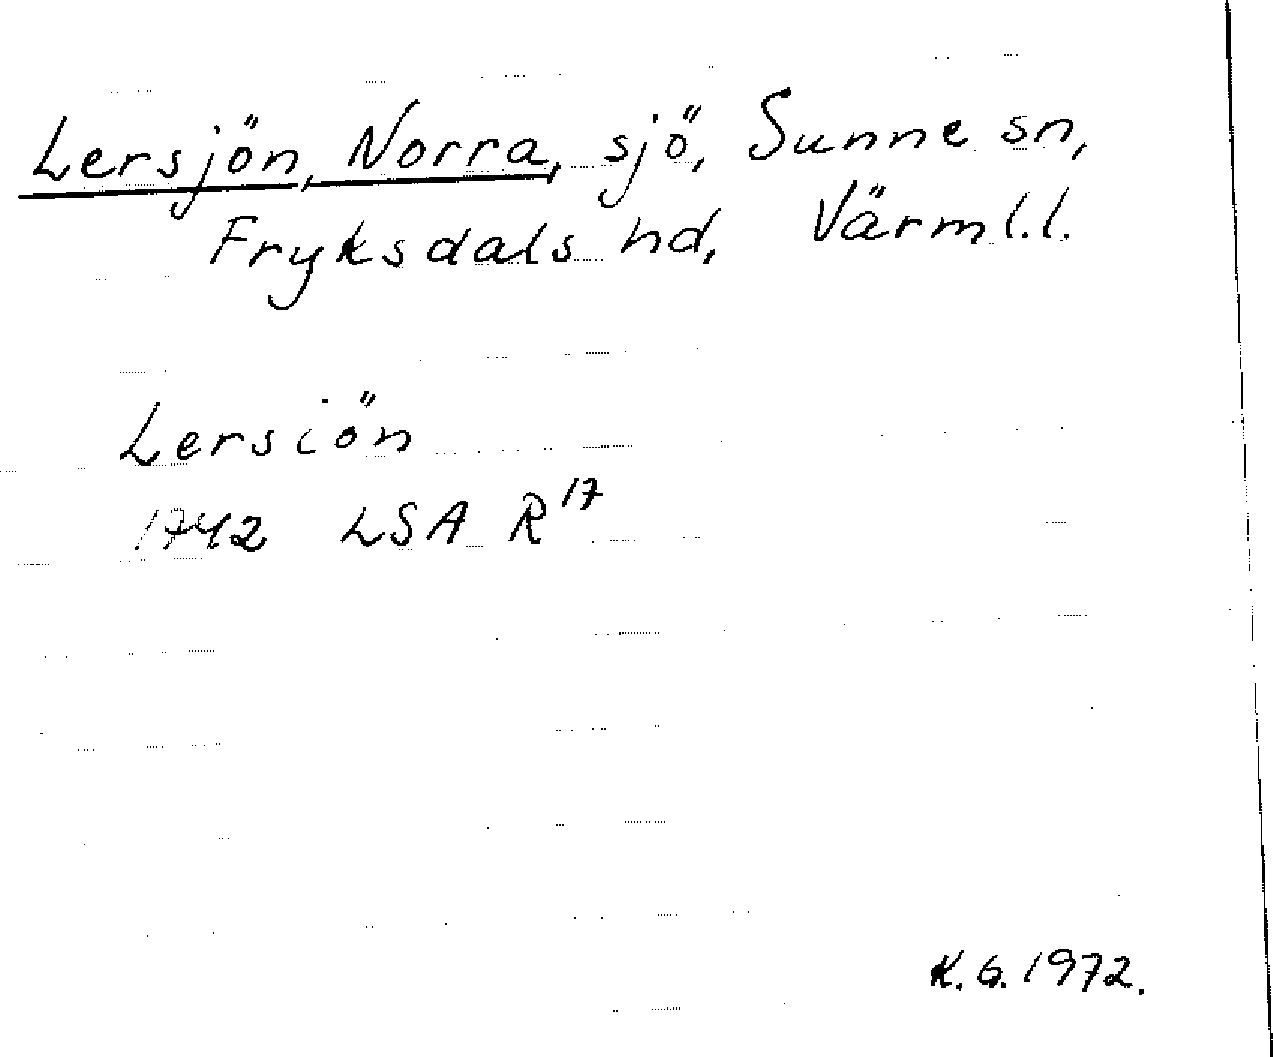 Lersjön, Norra, sjö, Sunne sn,
Fryksdals hd, Värml.l.
Lersiön
1742 LSA R17
K.G.1972.